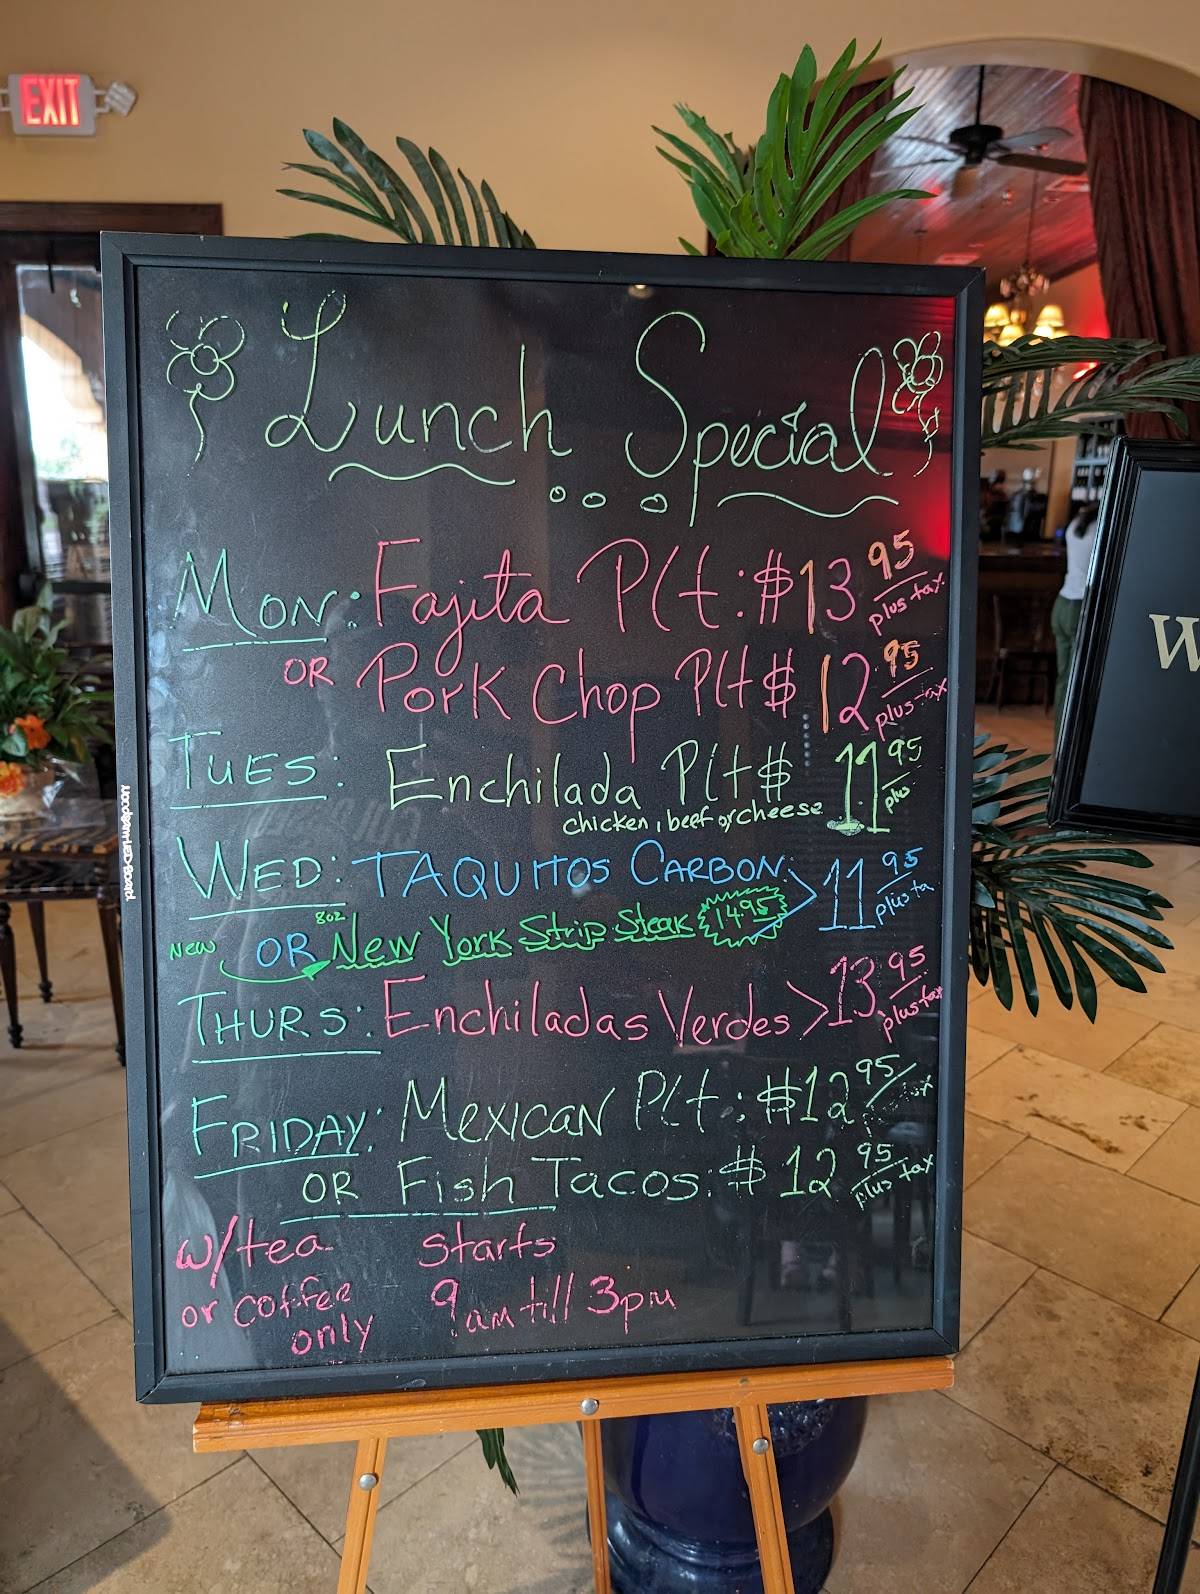 EXIT
Lunch Special
MON: Fajita Plt: $13 95 plus tax
OR Pork Chop Plt $12 95 plus tax
TUES: Enchilada Plt $11 95 plus
chicken, beef or cheese
WED: TAQUITOS CARBON: > 11 95 plus ta
New OR 8oz New York Strip Steak 14.95
THURS: Enchiladas Verdes > 13 95 plus tax
FRIDAY: MEXICAN Plt: $12 95
OR Fish Tacos: $12 95 plus tax
w/tea starts
or coffee 9am till 3pm
only
W